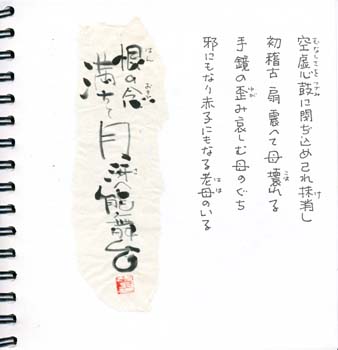 空虚心鼓に閉ぢ込めこれ抹消し
初稽古 扇震へて母壊れる
手鏡の歪み哀しむ母のぐち
邪にもなり赤子にもなる老母のいる
恨の念
満ちて月冴へ能舞台